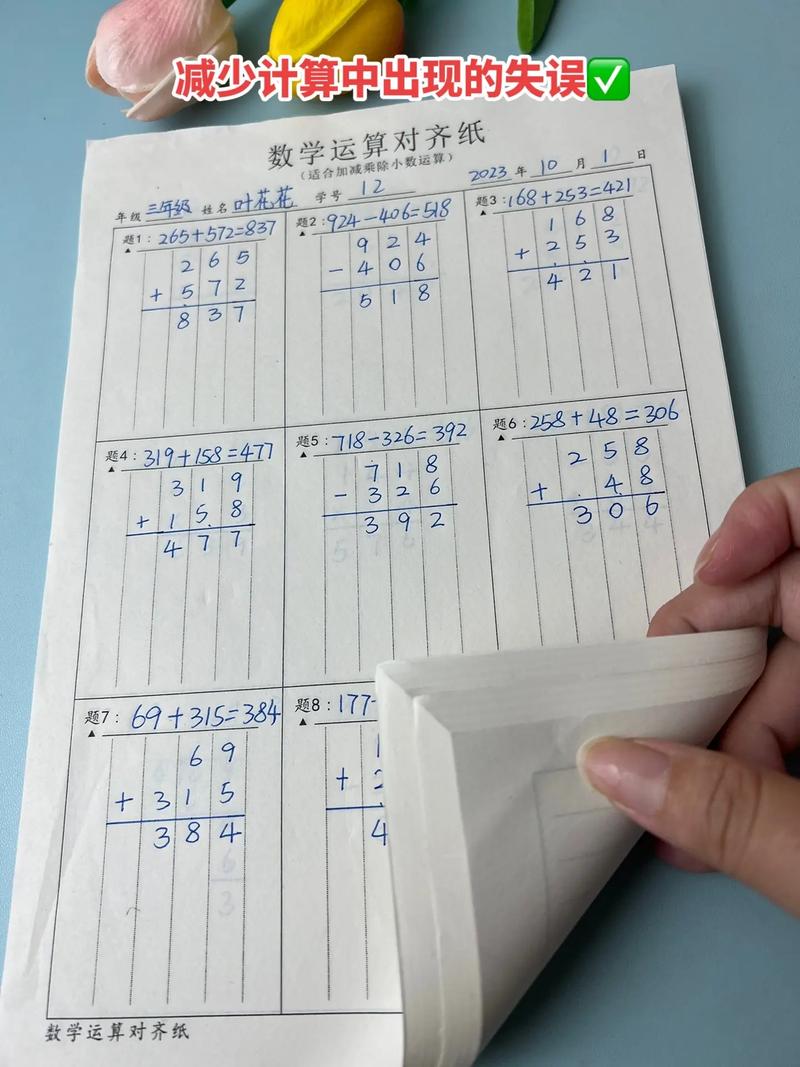 减少计算中出现的失误✅
数学运算对齐纸
（适合加减乘除小数运算）
年级 三年级 姓名 叶花花 学号 12 2023 年 10 月 1 日
题1：265+572=837
265
+572
837
题2：924-406=518
924
-406
518
题3：168+253=421
168
+253
421
题4：319+158=477
319
+158
477
题5：718-326=392
718
-326
392
题6：258+48=306
258
+48
306
题7：69+315=384
69
+315
384
题8：177
1
+2
4
数学运算对齐纸